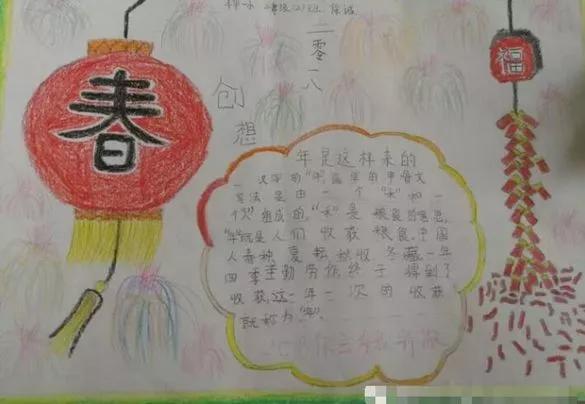 二零一八
创想
春
福
年是这样来的
汉字的"年"最早的甲骨文
写法是由一个"禾"和一
个"人"组成的,"禾"是粮食的意思,
"年"就是人们收获粮食。中国
人春种、夏耘、秋收、冬藏,一年
四季辛勤劳作终于得到了
收获,这一年一次的收获
就称为"年"。